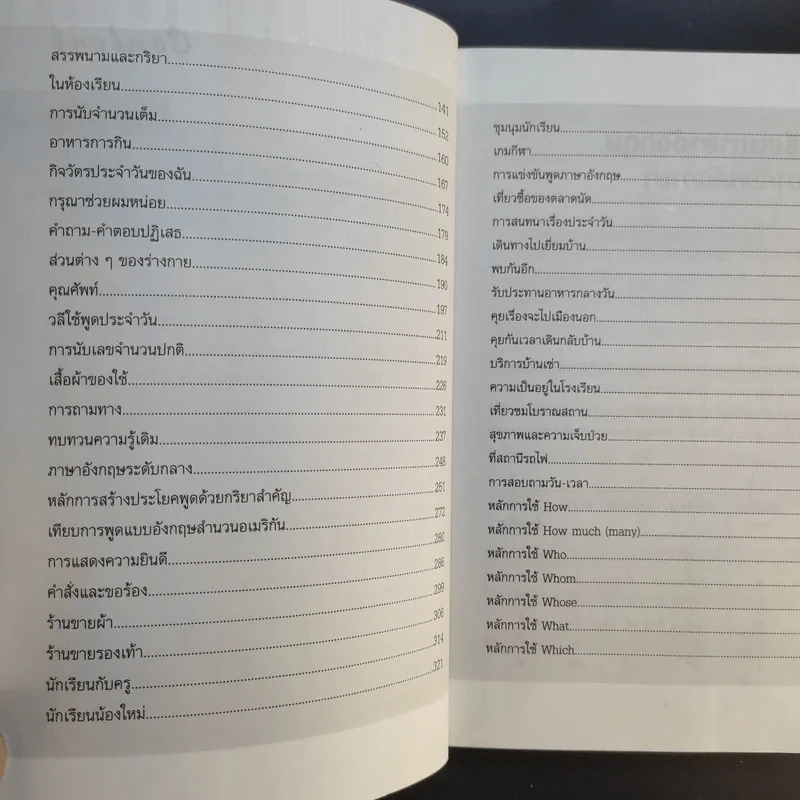 สรรพนามและกริยา....................141
ในห้องเรียน....................152
การนับจำนวนเต็ม....................160
อาหารการกิน....................167
กิจวัตรประจำวันของฉัน....................174
กรุณาช่วยผมหน่อย....................179
คำถาม-คำตอบปฏิเสธ....................184
ส่วนต่าง ๆ ของร่างกาย....................190
คุณศัพท์....................197
วลีใช้พูดประจำวัน....................211
การนับเลขจำนวนปกติ....................219
เสื้อผ้าของใช้....................226
การถามทาง....................231
ทบทวนความรู้เดิม....................237
ภาษาอังกฤษระดับกลาง....................248
หลักการสร้างประโยคพูดด้วยกริยาสำคัญ....................251
เทียบการพูดแบบอังกฤษสำนวนอเมริกัน....................272
การแสดงความยินดี....................280
คำสั่งและขอร้อง....................286
ร้านขายผ้า....................299
ร้านขายรองเท้า....................306
นักเรียนกับครู....................314
นักเรียนน้องใหม่....................321
ชุมนุมนักเรียน....................
เกมกีฬา....................
การแข่งขันพูดภาษาอังกฤษ....................
เที่ยวซื้อของตลาดนัด....................
การสนทนาเรื่องประจำวัน....................
เดินทางไปเยี่ยมบ้าน....................
พบกันอีก....................
รับประทานอาหารกลางวัน....................
คุยเรื่องจะไปเมืองนอก....................
คุยกันเวลาเดินกลับบ้าน....................
บริการบ้านเช่า....................
ความเป็นอยู่ในโรงเรียน....................
เที่ยวชมโบราณสถาน....................
สุขภาพและความเจ็บป่วย....................
ที่สถานีรถไฟ....................
การสอบถามวัน-เวลา....................
หลักการใช้ How....................
หลักการใช้ How much (many)....................
หลักการใช้ Who....................
หลักการใช้ Whom....................
หลักการใช้ Whose....................
หลักการใช้ What....................
หลักการใช้ Which....................